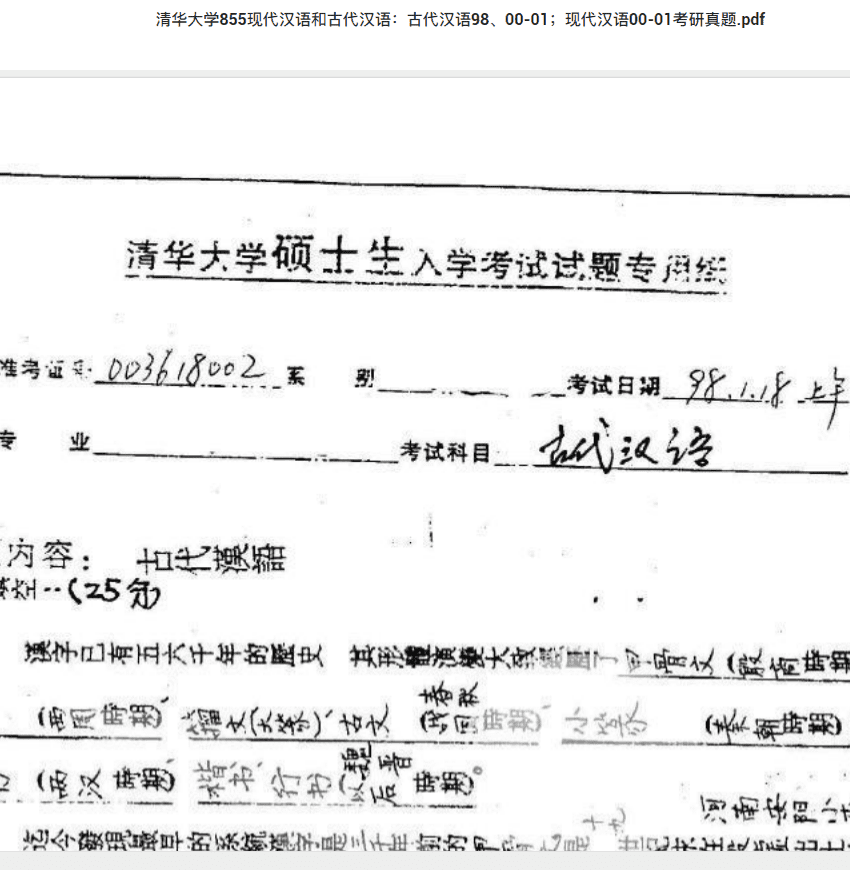 清华大学855现代汉语和古代汉语：古代汉语98、00-01；现代汉语00-01考研真题.pdf
清华大学硕士生入学考试试题专用纸
准考证号 003618002 系 别 考试日期 98.1.18 上午
专 业 考试科目 古代汉语
内容： 古代漢語
填空··(25分)
漢字已有五六千年的歷史 其形體演變大致經歷了甲骨文(殷商時期
(西周時期)、 籀文(大篆)、古文 (春秋战国時期)、小篆 (秦朝時期)
(西汉時期)、 楷书、行书(魏晋以后時期)。
河南安阳小
迄今發現最早的系統漢字是三千年前的甲 十九